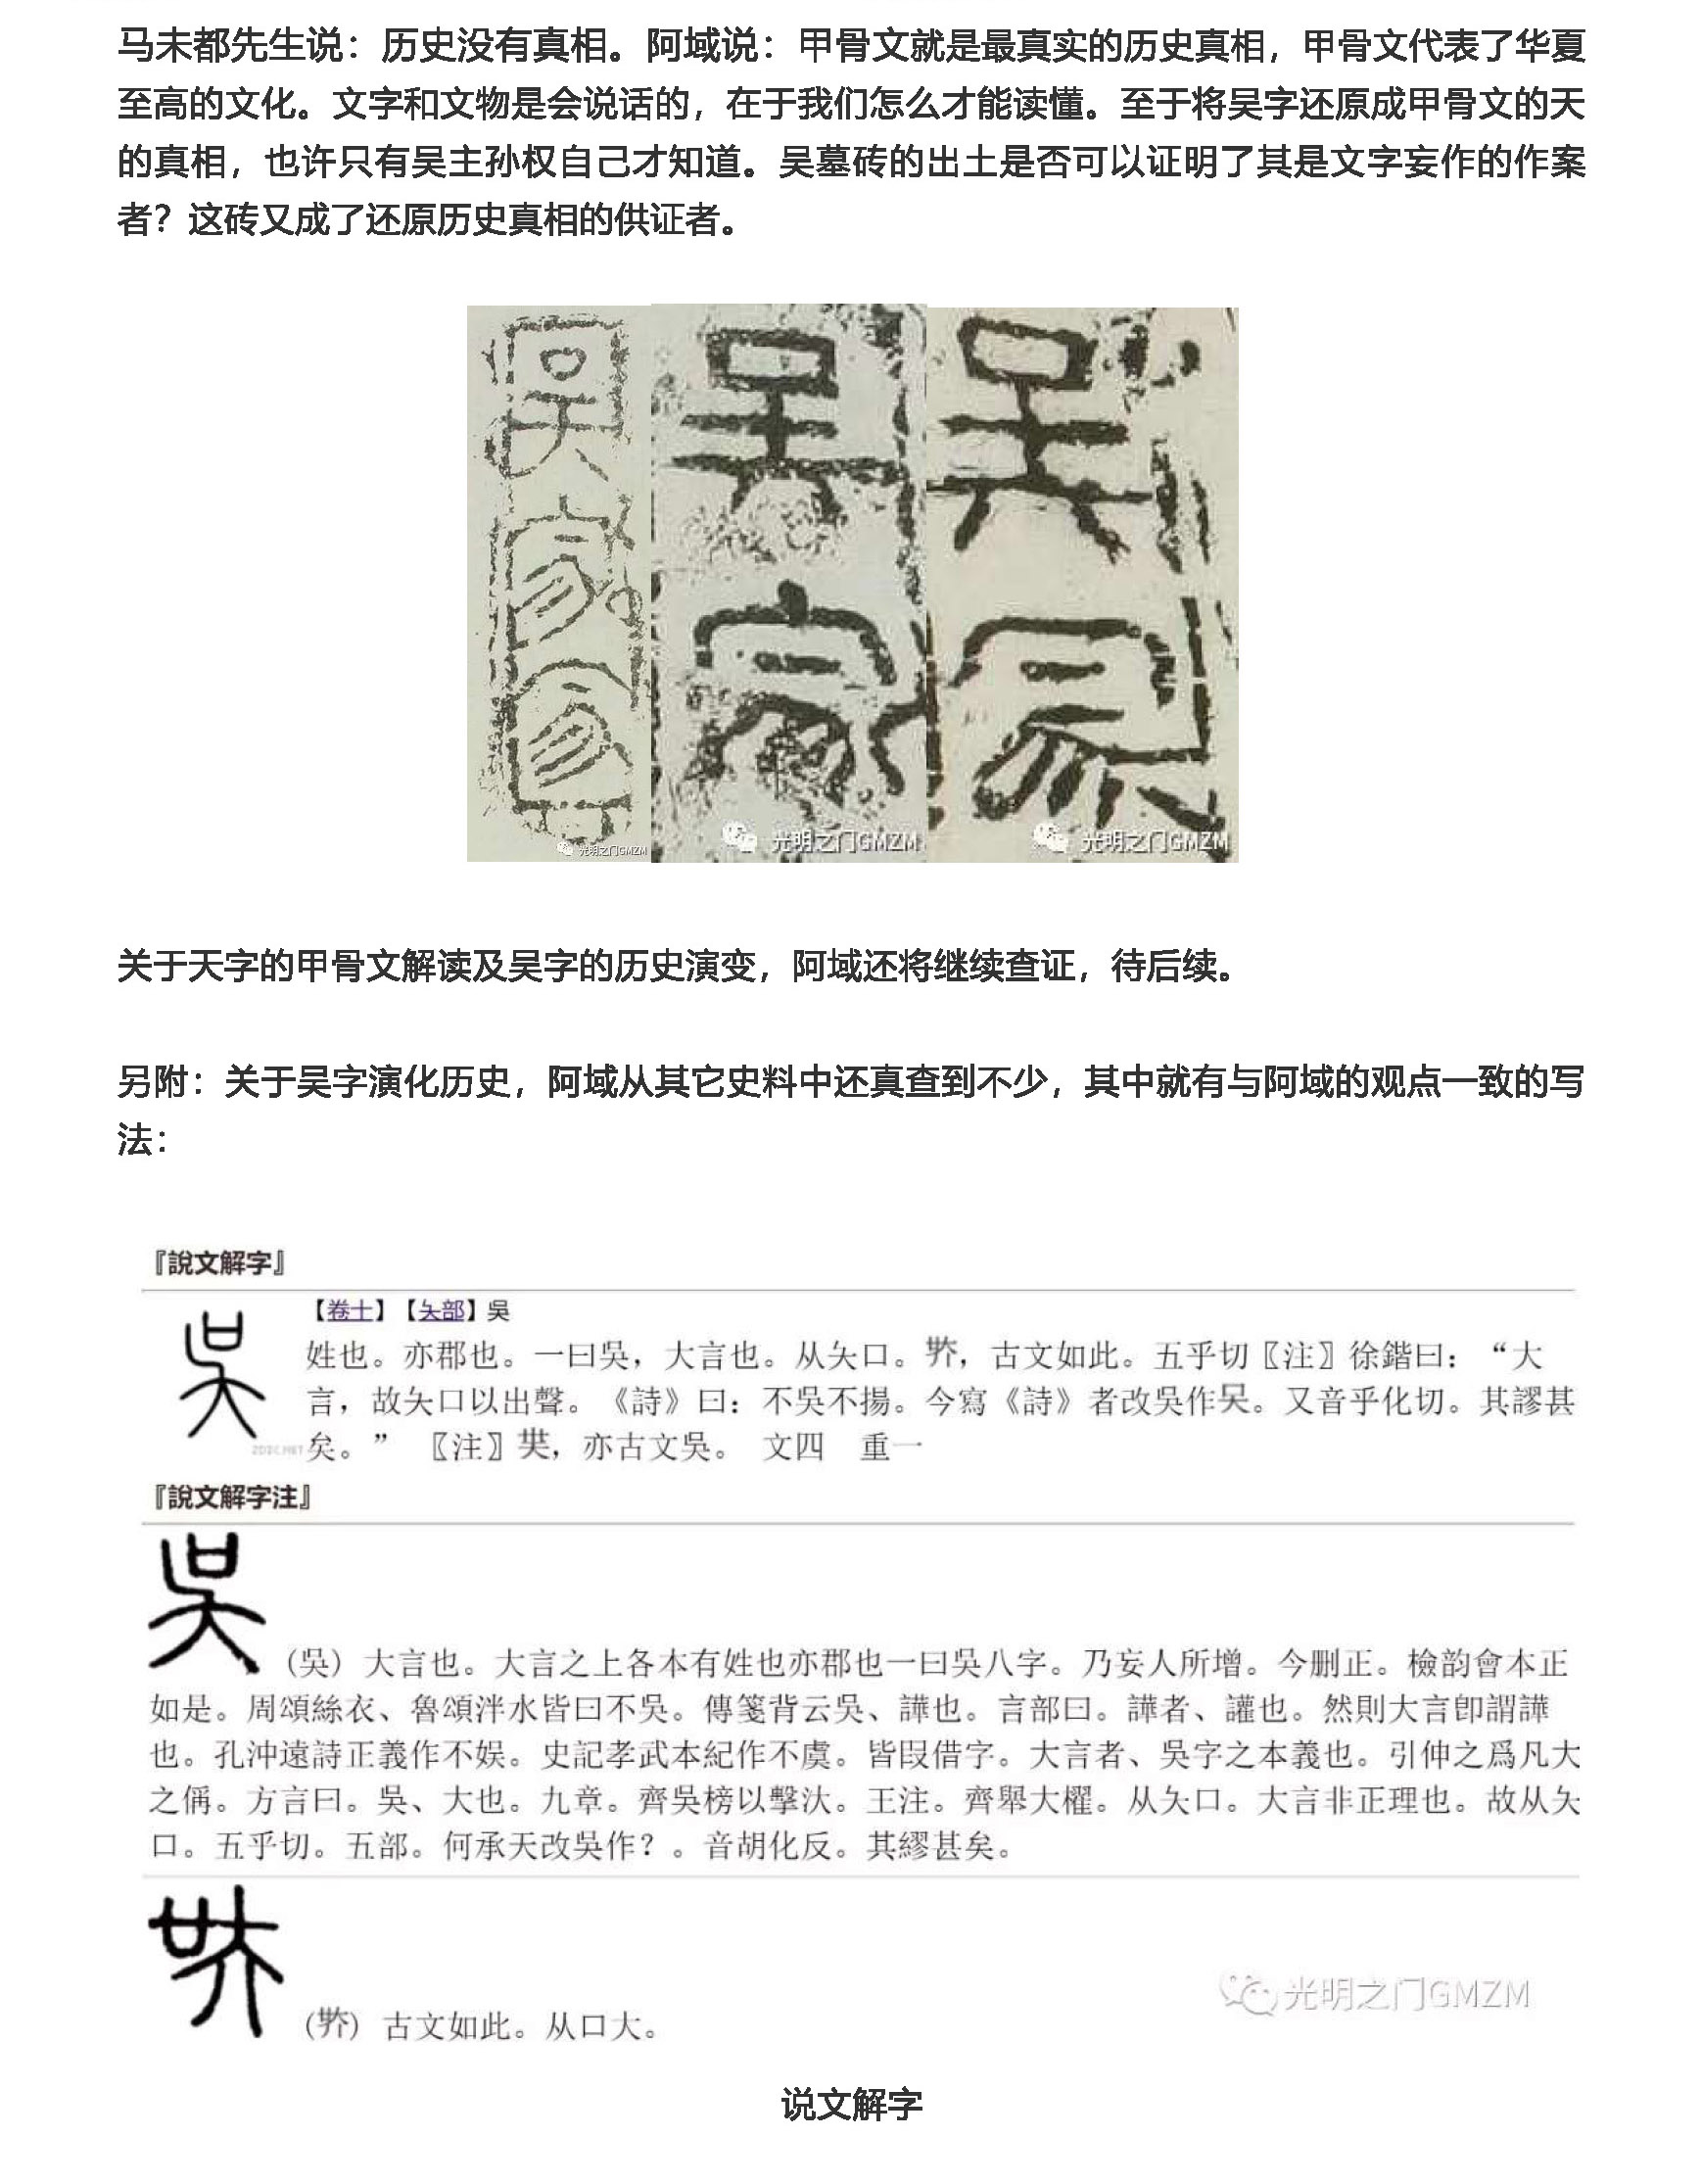 马未都先生说：历史没有真相。阿域说：甲骨文就是最真实的历史真相，甲骨文代表了华夏
至高的文化。文字和文物是会说话的，在于我们怎么才能读懂。至于将吴字还原成甲骨文的天
的真相，也许只有吴主孙权自己才知道。吴墓砖的出土是否可以证明了其是文字妄作的作案
者？这砖又成了还原历史真相的供证者。
吳家冢
吳家
吳冢
光明之门GMZM
光明之门GMZM
光明之门GMZM
关于天字的甲骨文解读及吴字的历史演变，阿域还将继续查证，待后续。
另附：关于吴字演化历史，阿域从其它史料中还真查到不少，其中就有与阿域的观点一致的写
法：
『說文解字』
【卷十】【夨部】吳
姓也。亦郡也。一曰吳，大言也。从夨口。𡗾，古文如此。五乎切〖注〗徐鍇曰：“大
言，故夨口以出聲。《詩》曰：不吳不揚。今寫《詩》者改吳作吴。又音乎化切。其謬甚
矣。” 〖注〗㕦，亦古文吳。 文四 重一
ZDIC.NET
『說文解字注』
（吳）大言也。大言之上各本有姓也亦郡也一曰吳八字。乃妄人所增。今刪正。檢韵會本正
如是。周頌絲衣、魯頌泮水皆曰不吳。傳箋背云吳、譁也。言部曰。譁者、讙也。然則大言卽謂譁
也。孔沖遠詩正義作不娛。史記孝武本紀作不虞。皆叚借字。大言者、吳字之本義也。引伸之爲凡大
之偁。方言曰。吳、大也。九章。齊吳榜以擊汏。王注。齊舉大櫂。从夨口。大言非正理也。故从夨
口。五乎切。五部。何承天改吳作？。音胡化反。其繆甚矣。
（𡗾）古文如此。从口大。
光明之门GMZM
说文解字